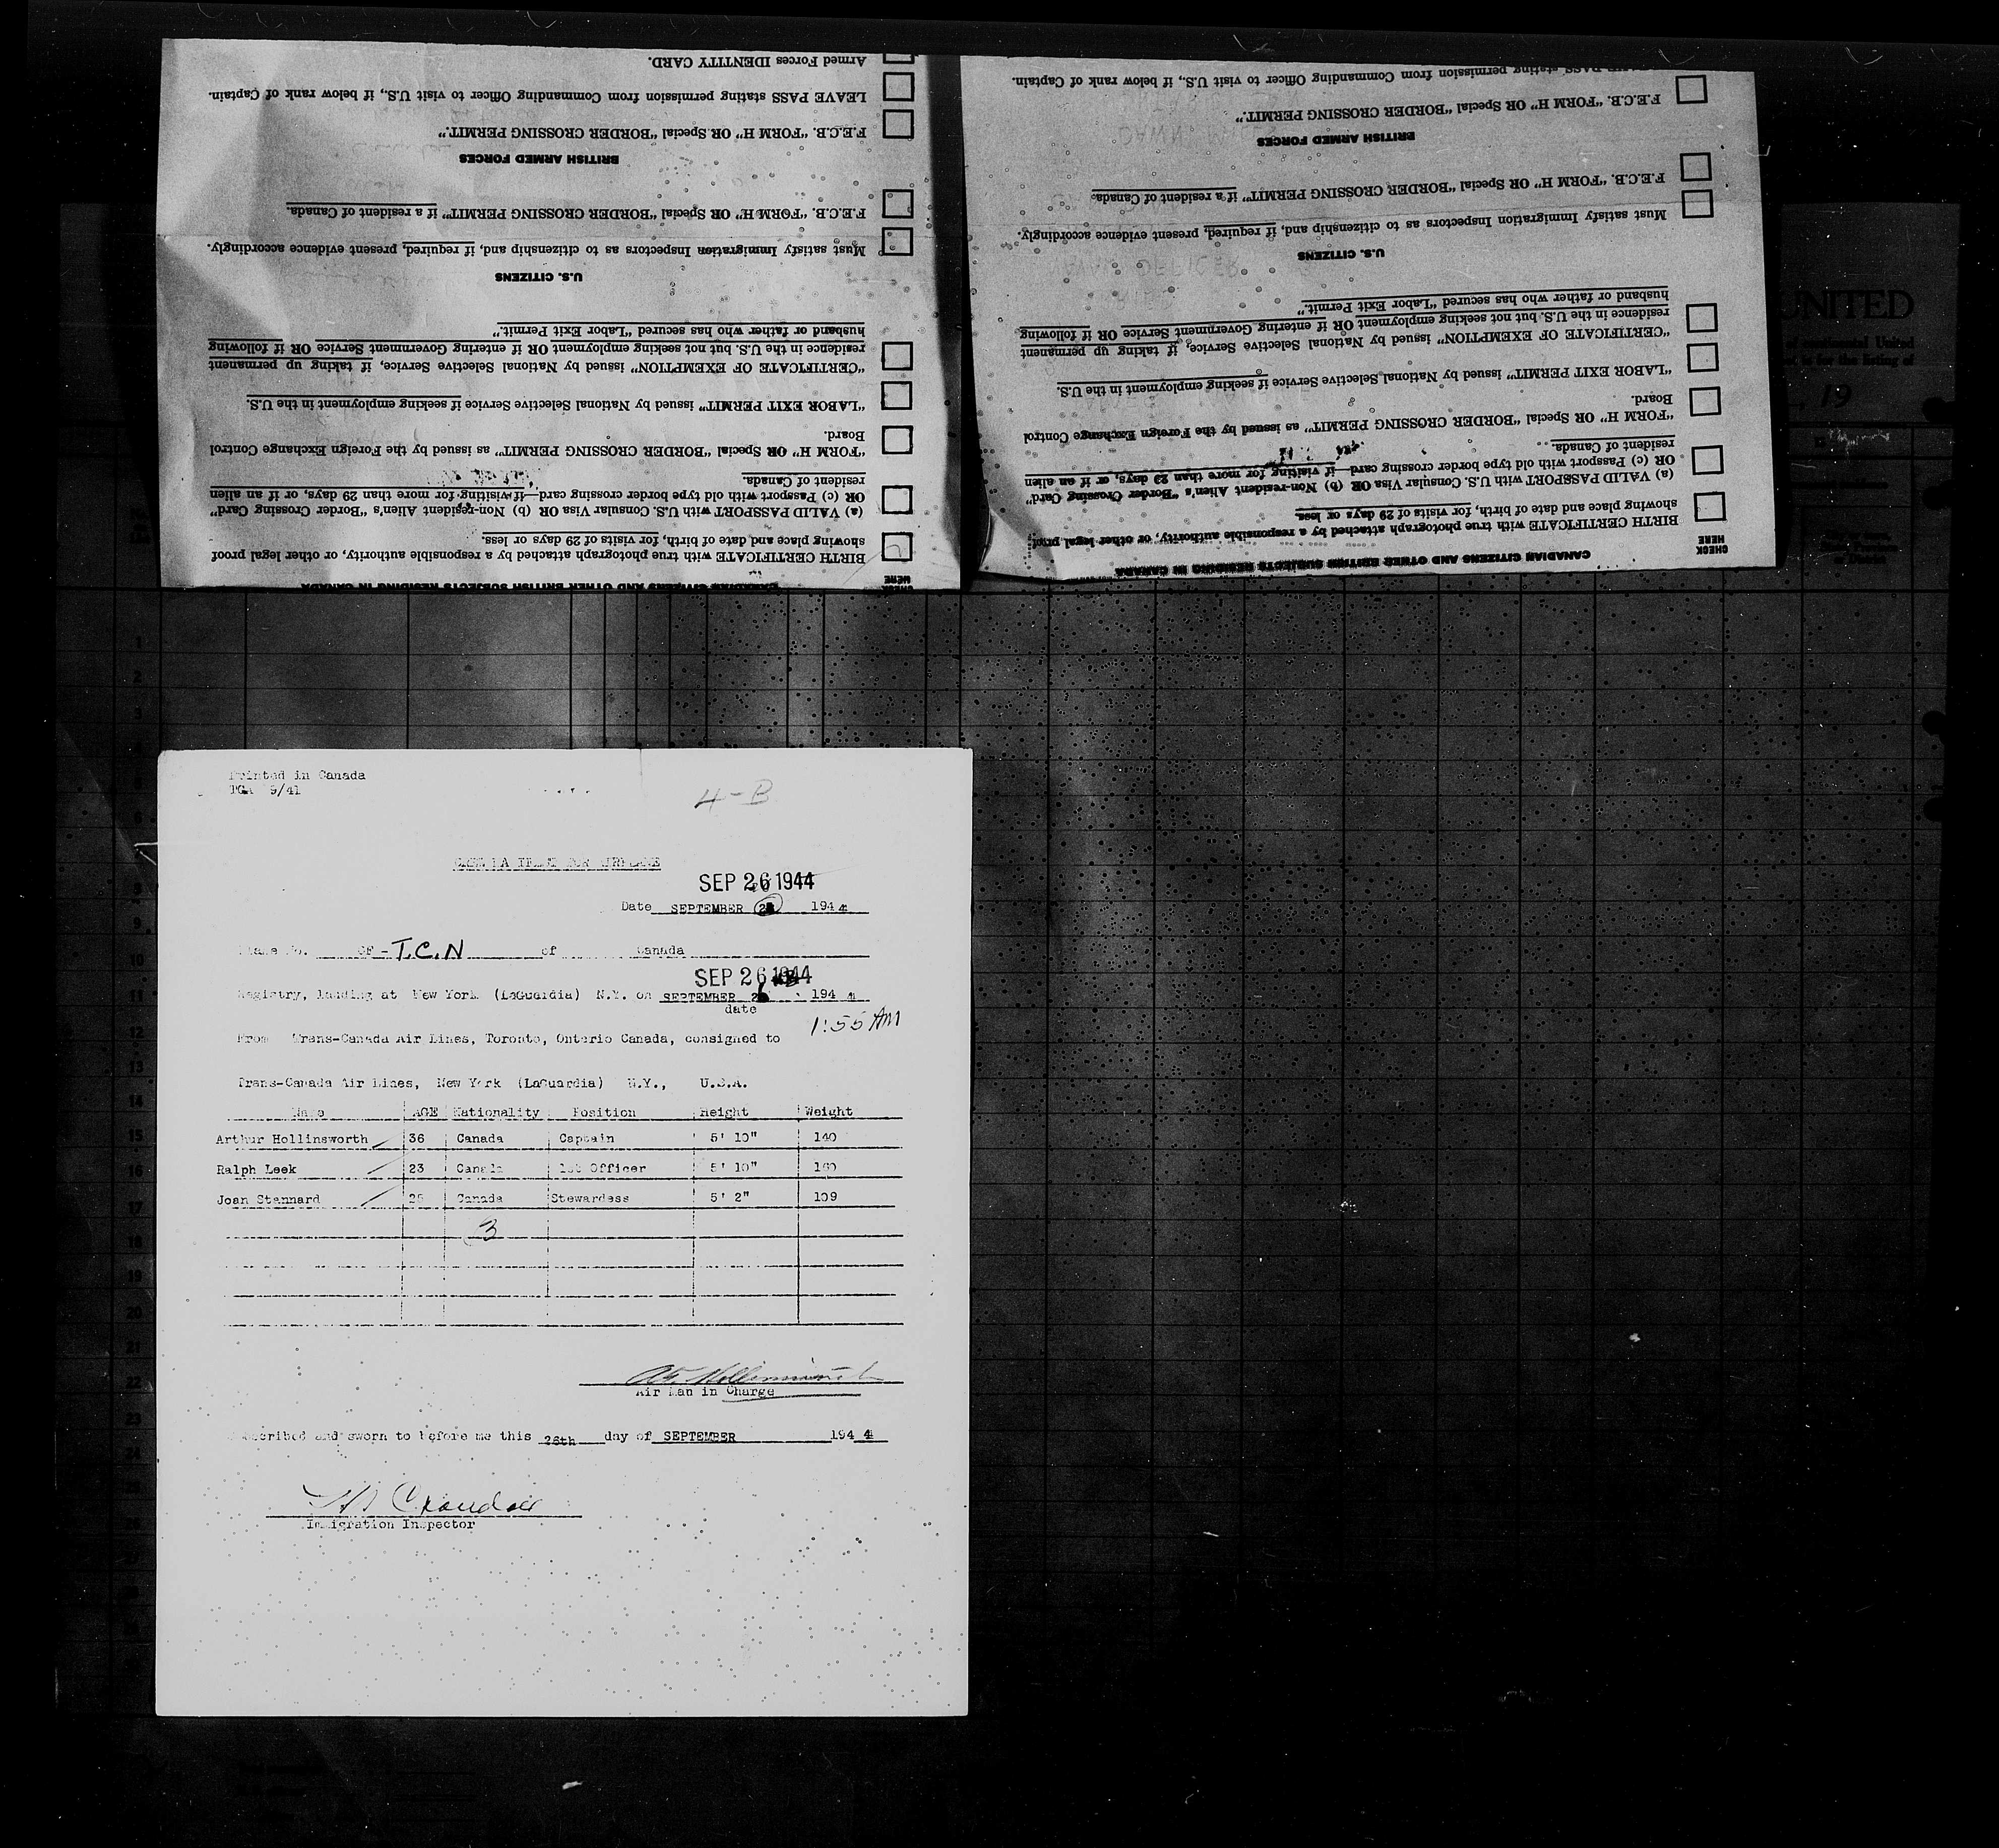 Armed Forces IDENTITY CARD.
LEAVE PASS stating permission from Commanding Officer to visit U.S., if below rank of Captain.
F.E.C.B. "FORM H" OR Special "BORDER CROSSING PERMIT."
BRITISH ARMED FORCES
F.E.C.B. "FORM H" OR Special "BORDER CROSSING PERMIT" if a resident of Canada.
Must satisfy Immigration Inspectors as to citizenship and, if required, present evidence accordingly.
U.S. CITIZENS
husband or father who has secured "Labor Exit Permit."
residence in the U.S. but not seeking employment OR if entering Government Service OR if following
"CERTIFICATE OF EXEMPTION" issued by National Selective Service, if taking up permanent
"LABOR EXIT PERMIT" issued by National Selective Service if seeking employment in the U.S.
Board.
"FORM H" OR Special "BORDER CROSSING PERMIT" as issued by the Foreign Exchange Control
resident of Canada.
OR (c) Passport with old type border crossing card—if visiting for more than 29 days, or if an alien
(a) VALID PASSPORT with U.S. Consular Visa OR (b) Non-resident Alien's "Border Crossing Card"
showing place and date of birth, for visits of 29 days or less.
BIRTH CERTIFICATE with true photograph attached by a responsible authority, or other legal proof
HERE
CANADIAN CITIZENS AND OTHER BRITISH SUBJECTS RESIDING IN CANADA
PASS stating permission from Commanding Officer to visit U.S., if below rank of Captain.
F.E.C.B. "FORM H" OR Special "BORDER CROSSING PERMIT."
BRITISH ARMED FORCES
F.E.C.B. "FORM H" OR Special "BORDER CROSSING PERMIT" if a resident of Canada.
Must satisfy Immigration Inspectors as to citizenship and, if required, present evidence accordingly.
U.S. CITIZENS
husband or father who has secured "Labor Exit Permit."
residence in the U.S. but not seeking employment OR if entering Government Service OR if following
"CERTIFICATE OF EXEMPTION" issued by National Selective Service, if taking up permanent
"LABOR EXIT PERMIT" issued by National Selective Service if seeking employment in the U.S.
Board.
"FORM H" OR Special "BORDER CROSSING PERMIT" as issued by the Foreign Exchange Control
resident of Canada.
OR (c) Passport with old type border crossing card—if visiting for more than 29 days, or if an alien
(a) VALID PASSPORT with U.S. Consular Visa OR (b) Non-resident Alien's "Border Crossing Card"
showing place and date of birth, for visits of 29 days or less.
BIRTH CERTIFICATE with true photograph attached by a responsible authority, or other legal proof
CHECK HERE
CANADIAN CITIZENS AND OTHER BRITISH SUBJECTS RESIDING IN CANADA
UNITED
United
is for the listing of
19
Printed in Canada
TCA 9/41
4-B
FOR AIRPLANE
SEP 26 1944
Date SEPTEMBER 1944
CF-T.C.N of Canada
SEP 26 1944
Registry, landing at New York (LaGuardia) N.Y. on SEPTEMBER 26 1944
date
1:55 AM
From Trans-Canada Air Lines, Toronto, Ontario Canada, consigned to
Trans-Canada Air Lines, New York (LaGuardia) N.Y., U.S.A.
Name AGE Nationality Position Height Weight
Arthur Hollinsworth 36 Canada Captain 5' 10" 140
Ralph Leek 23 Canada 1st Officer 5' 10" 160
Joan Stannard 26 Canada Stewardess 5' 2" 109
3
Air Man in Charge
Subscribed and sworn to before me this 26th day of SEPTEMBER 1944
Immigration Inspector
1
2
3
9
10
11
12
13
14
15
16
17
18
19
20
21
22
23
24